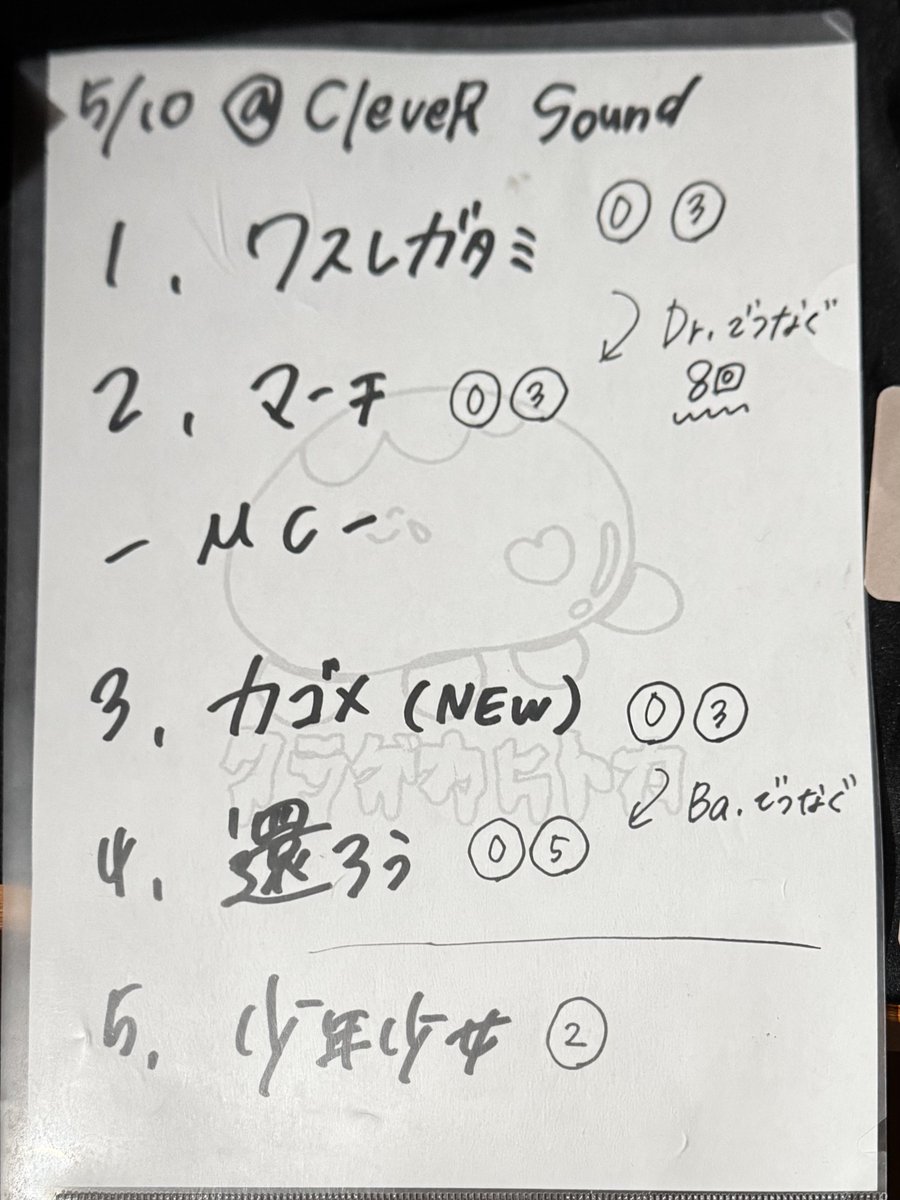 5/10 @ CleveR Sound
1. ワスレガタミ ⓪ ③
Dr.でつなぐ
8回
2. マーチ ⓪ ③
- MC -
3. カゴメ (NEW) ⓪ ③
クラゲカヒトカ
Ba.でつなぐ
4. 還ろう ⓪ ⑤
5. 少年少女 ②